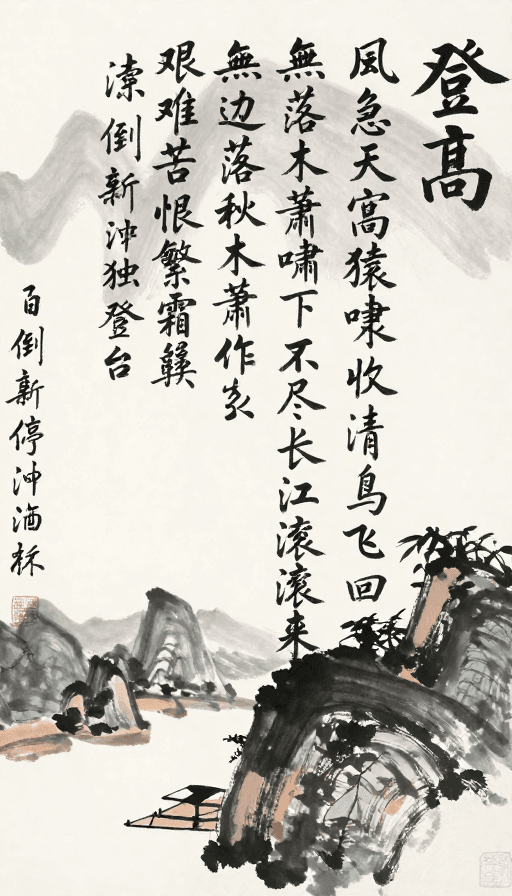 登高
風急天窩猿啸收清鸟飞回
無落木萧啸下不尽长江滚滚来
無边落秋木萧作
艰难苦恨繁霜
倒新沖独登台
百倒新停沖酒杯